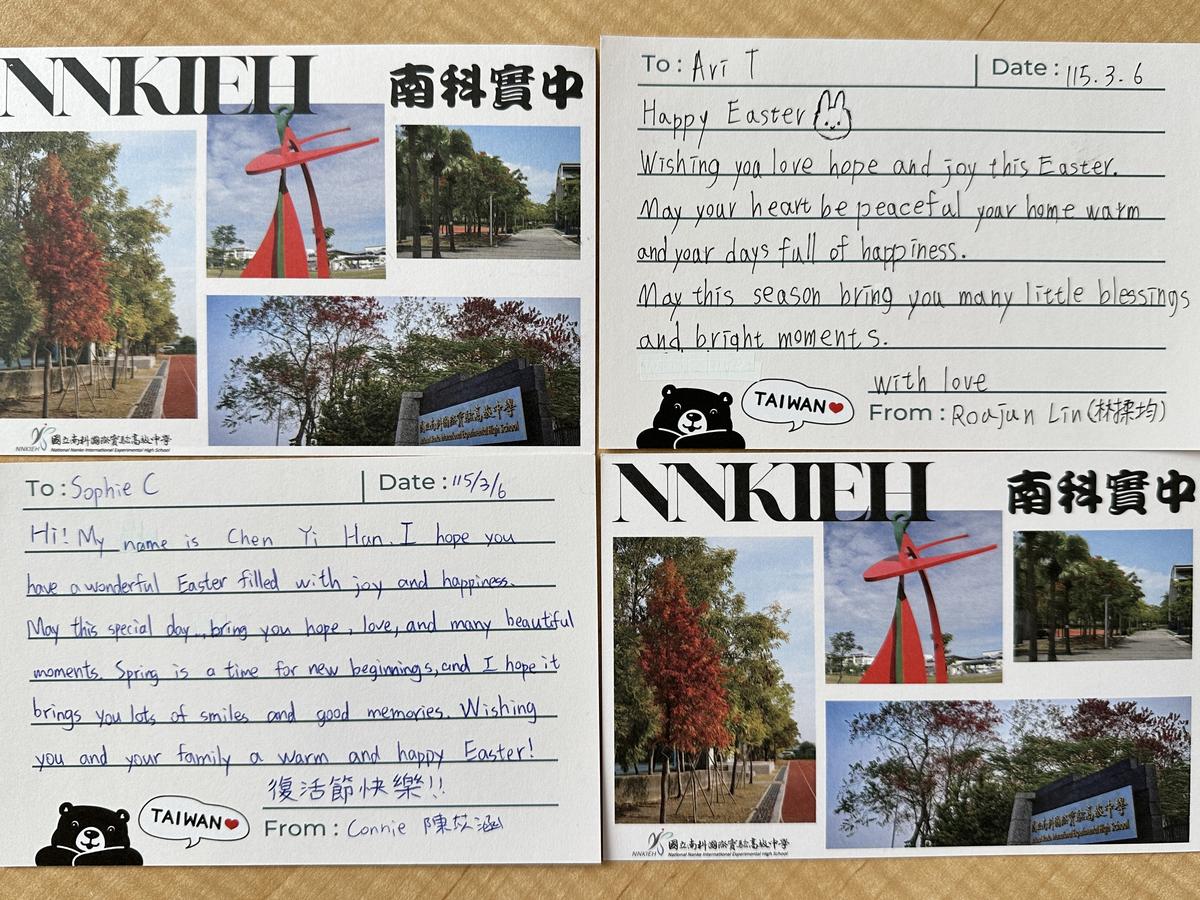 NNKIEH
南科實中
國立南科國際實驗高級中學
NNKIEH
National Nanke International Experimental High School
國立南科國際實驗高級中學
National Nanke International Experimental High School
To: Avi T
Date: 115.3.6
Happy Easter
Wishing you love hope and joy this Easter.
May your heart be peaceful your home warm
and your days full of happiness.
May this season bring you many little blessings
and bright moments.
with love
TAIWAN
From: Roujun Lin (林揉均)
To: Sophie C
Date: 115/3/6
Hi! My name is Chen Yi Han. I hope you
have a wonderful Easter filled with joy and happiness.
May this special day bring you hope, love, and many beautiful
moments. Spring is a time for new beginnings, and I hope it
brings you lots of smiles and good memories. Wishing
you and your family a warm and happy Easter!
復活節快樂!!
TAIWAN
From: Connie 陳苡涵
NNKIEH
南科實中
國立南科國際實驗高級中學
NNKIEH
National Nanke International Experimental High School
國立南科國際實驗高級中學
National Nanke International Experimental High School